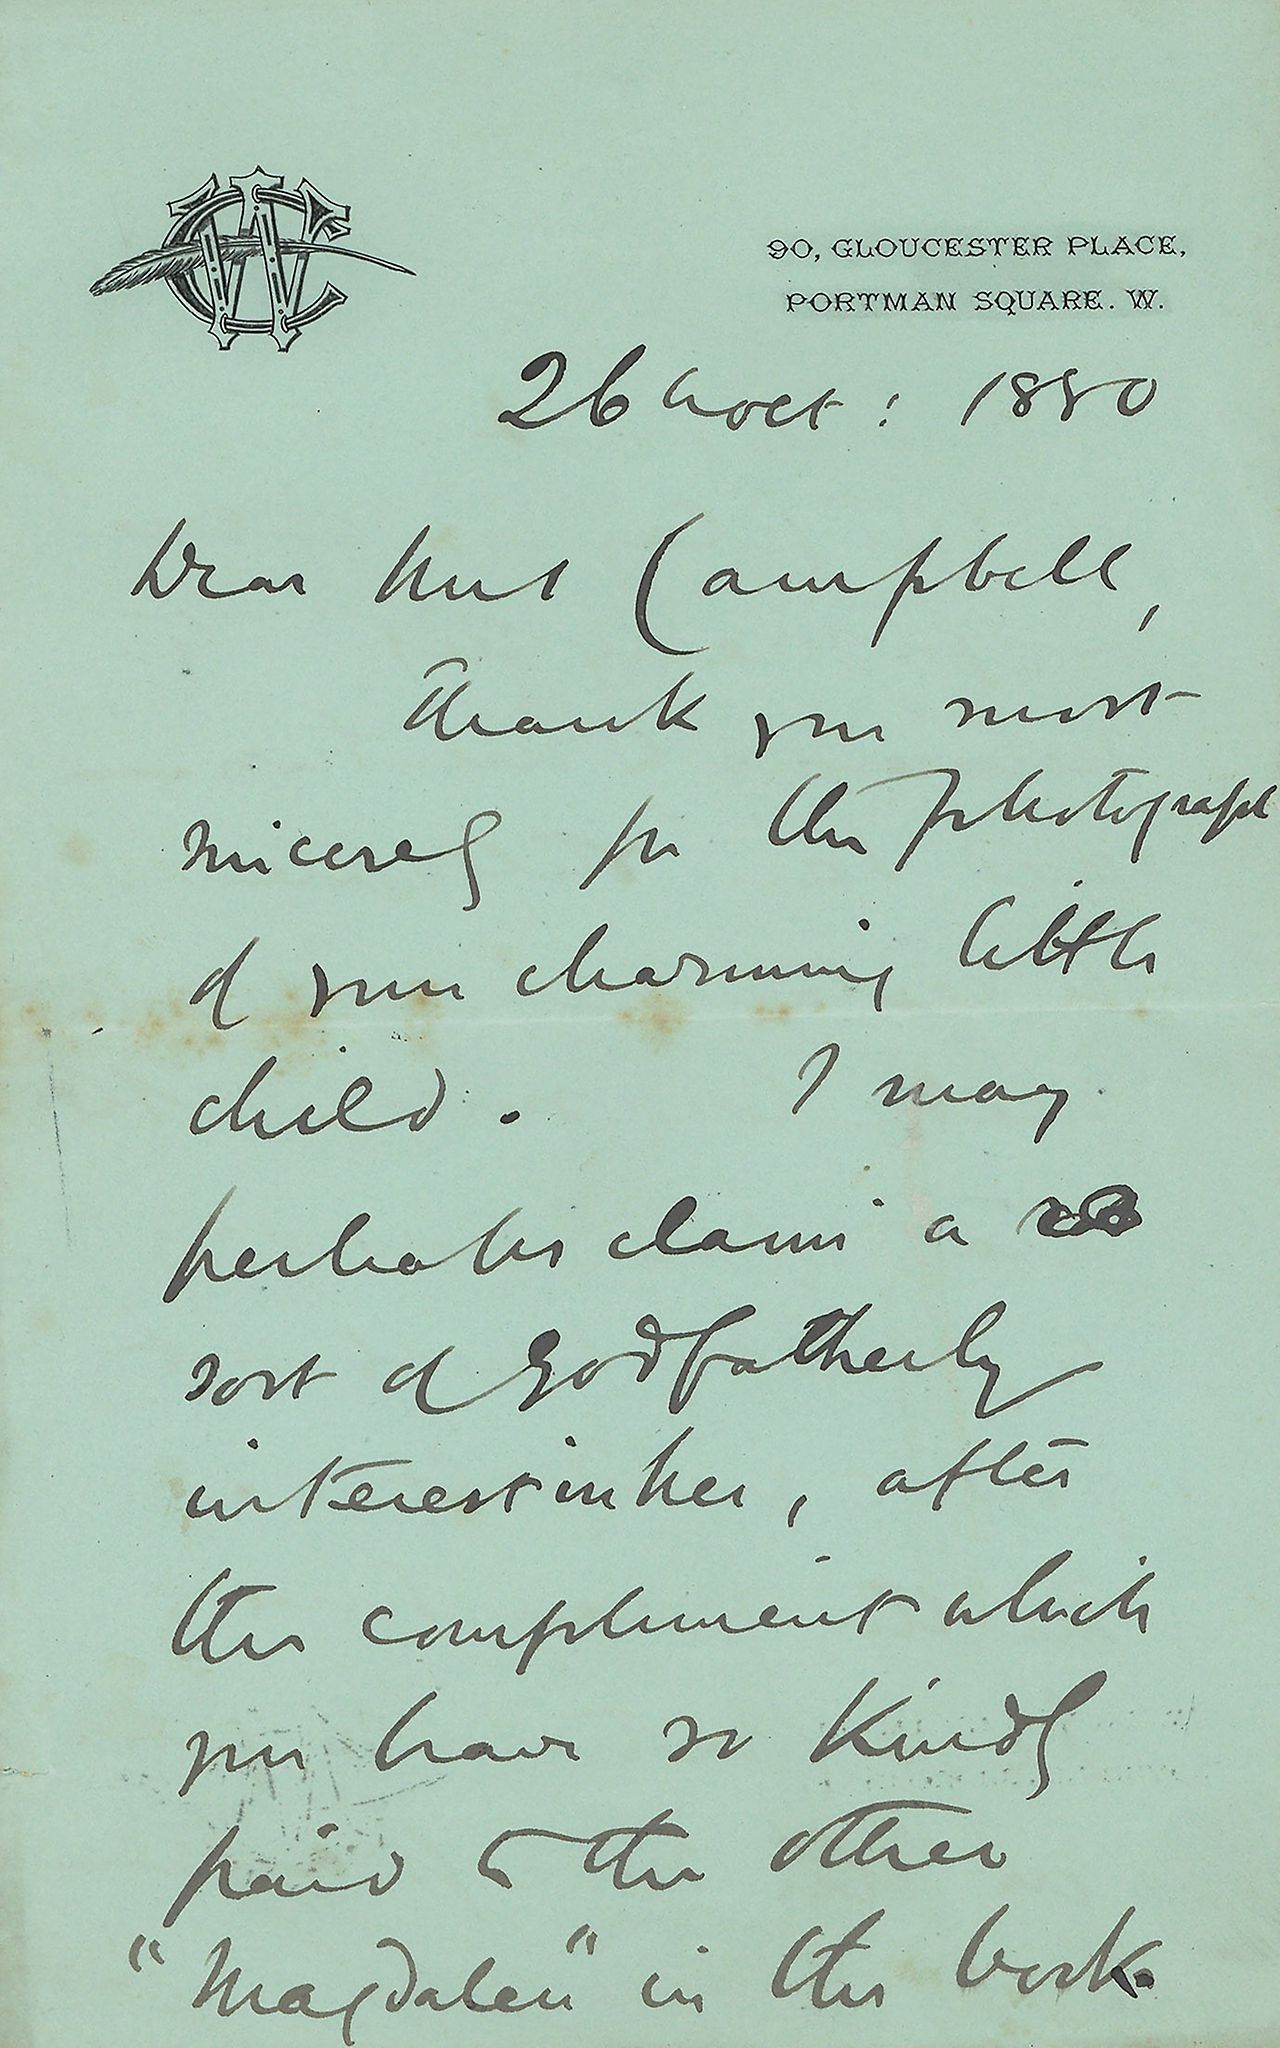 WC
90, GLOUCESTER PLACE,
PORTMAN SQUARE. W.
26 Oct: 1880
Dear Mrs Campbell,
Thank you most
sincerely for the photograph
of your charming little
child. I may
perhaps claim a
sort of Godfatherly
interest in her, after
the compliment which
you have so kindly
paid to the other
"Magdalen" in the book.